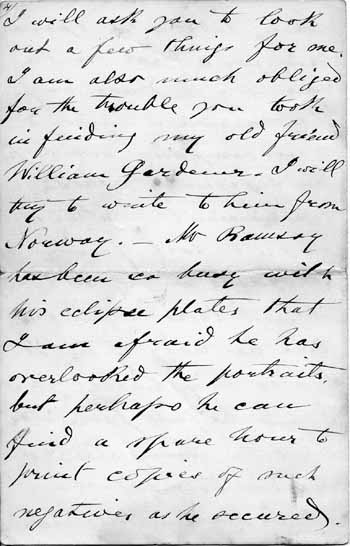 4)
I will ask you to look
out a few things for me.
I am also much obliged
for the trouble you took
in finding my old friend
William Gardener. I will
try to write to him from
Norway. — Mr Ramsay
has been so busy with
his eclipse plates that
I am afraid he has
overlooked the portraits,
but perhaps he can
find a spare hour to
print copies of such
negatives as he secured.